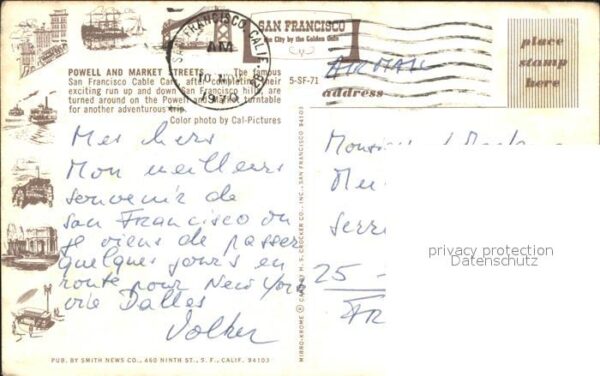 SAN FRANCISCO, CALIF.
AM
1970
SAN FRANCISCO
The City by the Golden Gate
place
stamp
here
POWELL AND MARKET STREETS The famous
San Francisco Cable Cars, after completing their
exciting run up and down San Francisco hills, are
turned around on the Powell and Market turntable
for another adventurous trip.
Color photo by Cal-Pictures
5-SF-71
AIR MAIL
address
Mes chers
Mon meilleurs
souvenir de
San Francisco ou
je viens de passer
quelques jours en
route pour New York
via Dallas
Volker
MIRRO-KROME ® CARD BY H. S. CROCKER CO., INC., SAN FRANCISCO, CALIF. 94103
Monsieur
Serre
25 -
FR
privacy protection
Datenschutz
PUB. BY SMITH NEWS CO., 460 NINTH ST., S. F., CALIF. 94103